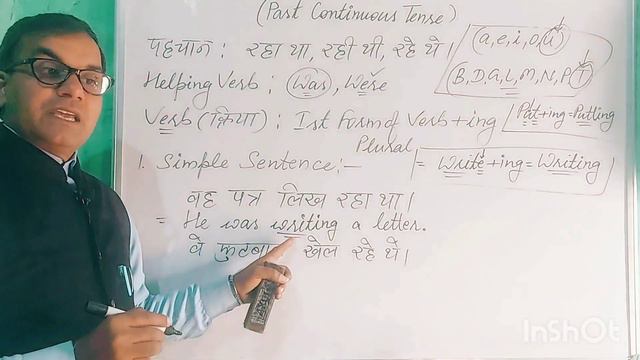 (Past Continuous Tense)
पहचान : रहा था, रही थी, रहे थे।
(a, e, i, o, u)
Helping Verb : Was, Were
(B, D, G, L, M, N, P, T)
Verb (क्रिया) : Ist form of Verb + ing
Pat+ing = Putting
Plural
1. Simple Sentence:-
= Write+ing = Writing
वह पत्र लिख रहा था।
= He was writing a letter.
वे फुटबा खेल रहे थे।
InShOt